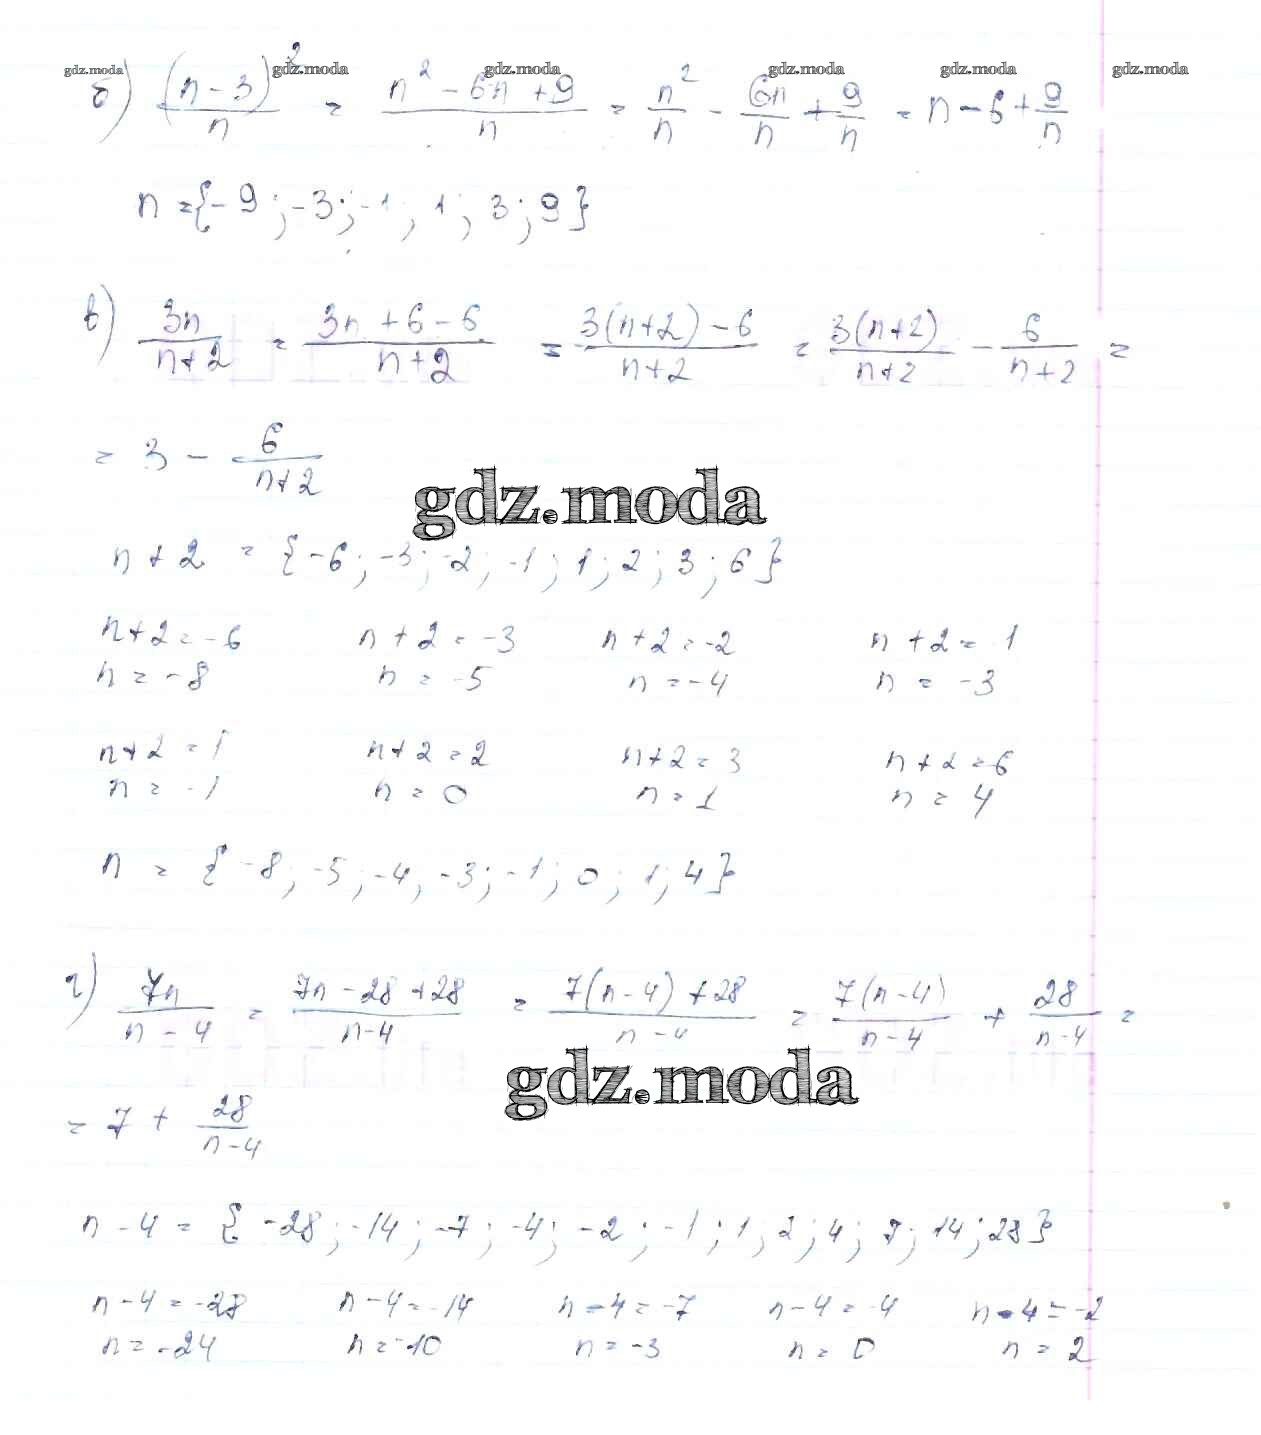 gdz.moda gdz.moda gdz.moda gdz.moda gdz.moda gdz.moda
б) (n-3)²/n = (n² - 6n + 9)/n = n²/n - 6n/n + 9/n = n - 6 + 9/n
n = {-9; -3; -1; 1; 3; 9}
в) 3n/(n+2) = (3n + 6 - 6)/(n+2) = (3(n+2) - 6)/(n+2) = 3(n+2)/(n+2) - 6/(n+2) =
= 3 - 6/(n+2)
gdz.moda
n + 2 = {-6; -3; -2; -1; 1; 2; 3; 6}
n+2 = -6 n+2 = -3 n+2 = -2 n+2 = -1
n = -8 n = -5 n = -4 n = -3
n+2 = 1 n+2 = 2 n+2 = 3 n+2 = 6
n = -1 n = 0 n = 1 n = 4
n = {-8; -5; -4; -3; -1; 0; 1; 4}
г) 7n/(n-4) = (7n - 28 + 28)/(n-4) = (7(n-4) + 28)/(n-4) = 7(n-4)/(n-4) + 28/(n-4) =
gdz.moda
= 7 + 28/(n-4)
n - 4 = {-28; -14; -7; -4; -2; -1; 1; 2; 4; 7; 14; 28}
n-4 = -28 n-4 = -14 n-4 = -7 n-4 = -4 n-4 = -2
n = -24 n = -10 n = -3 n = 0 n = 2